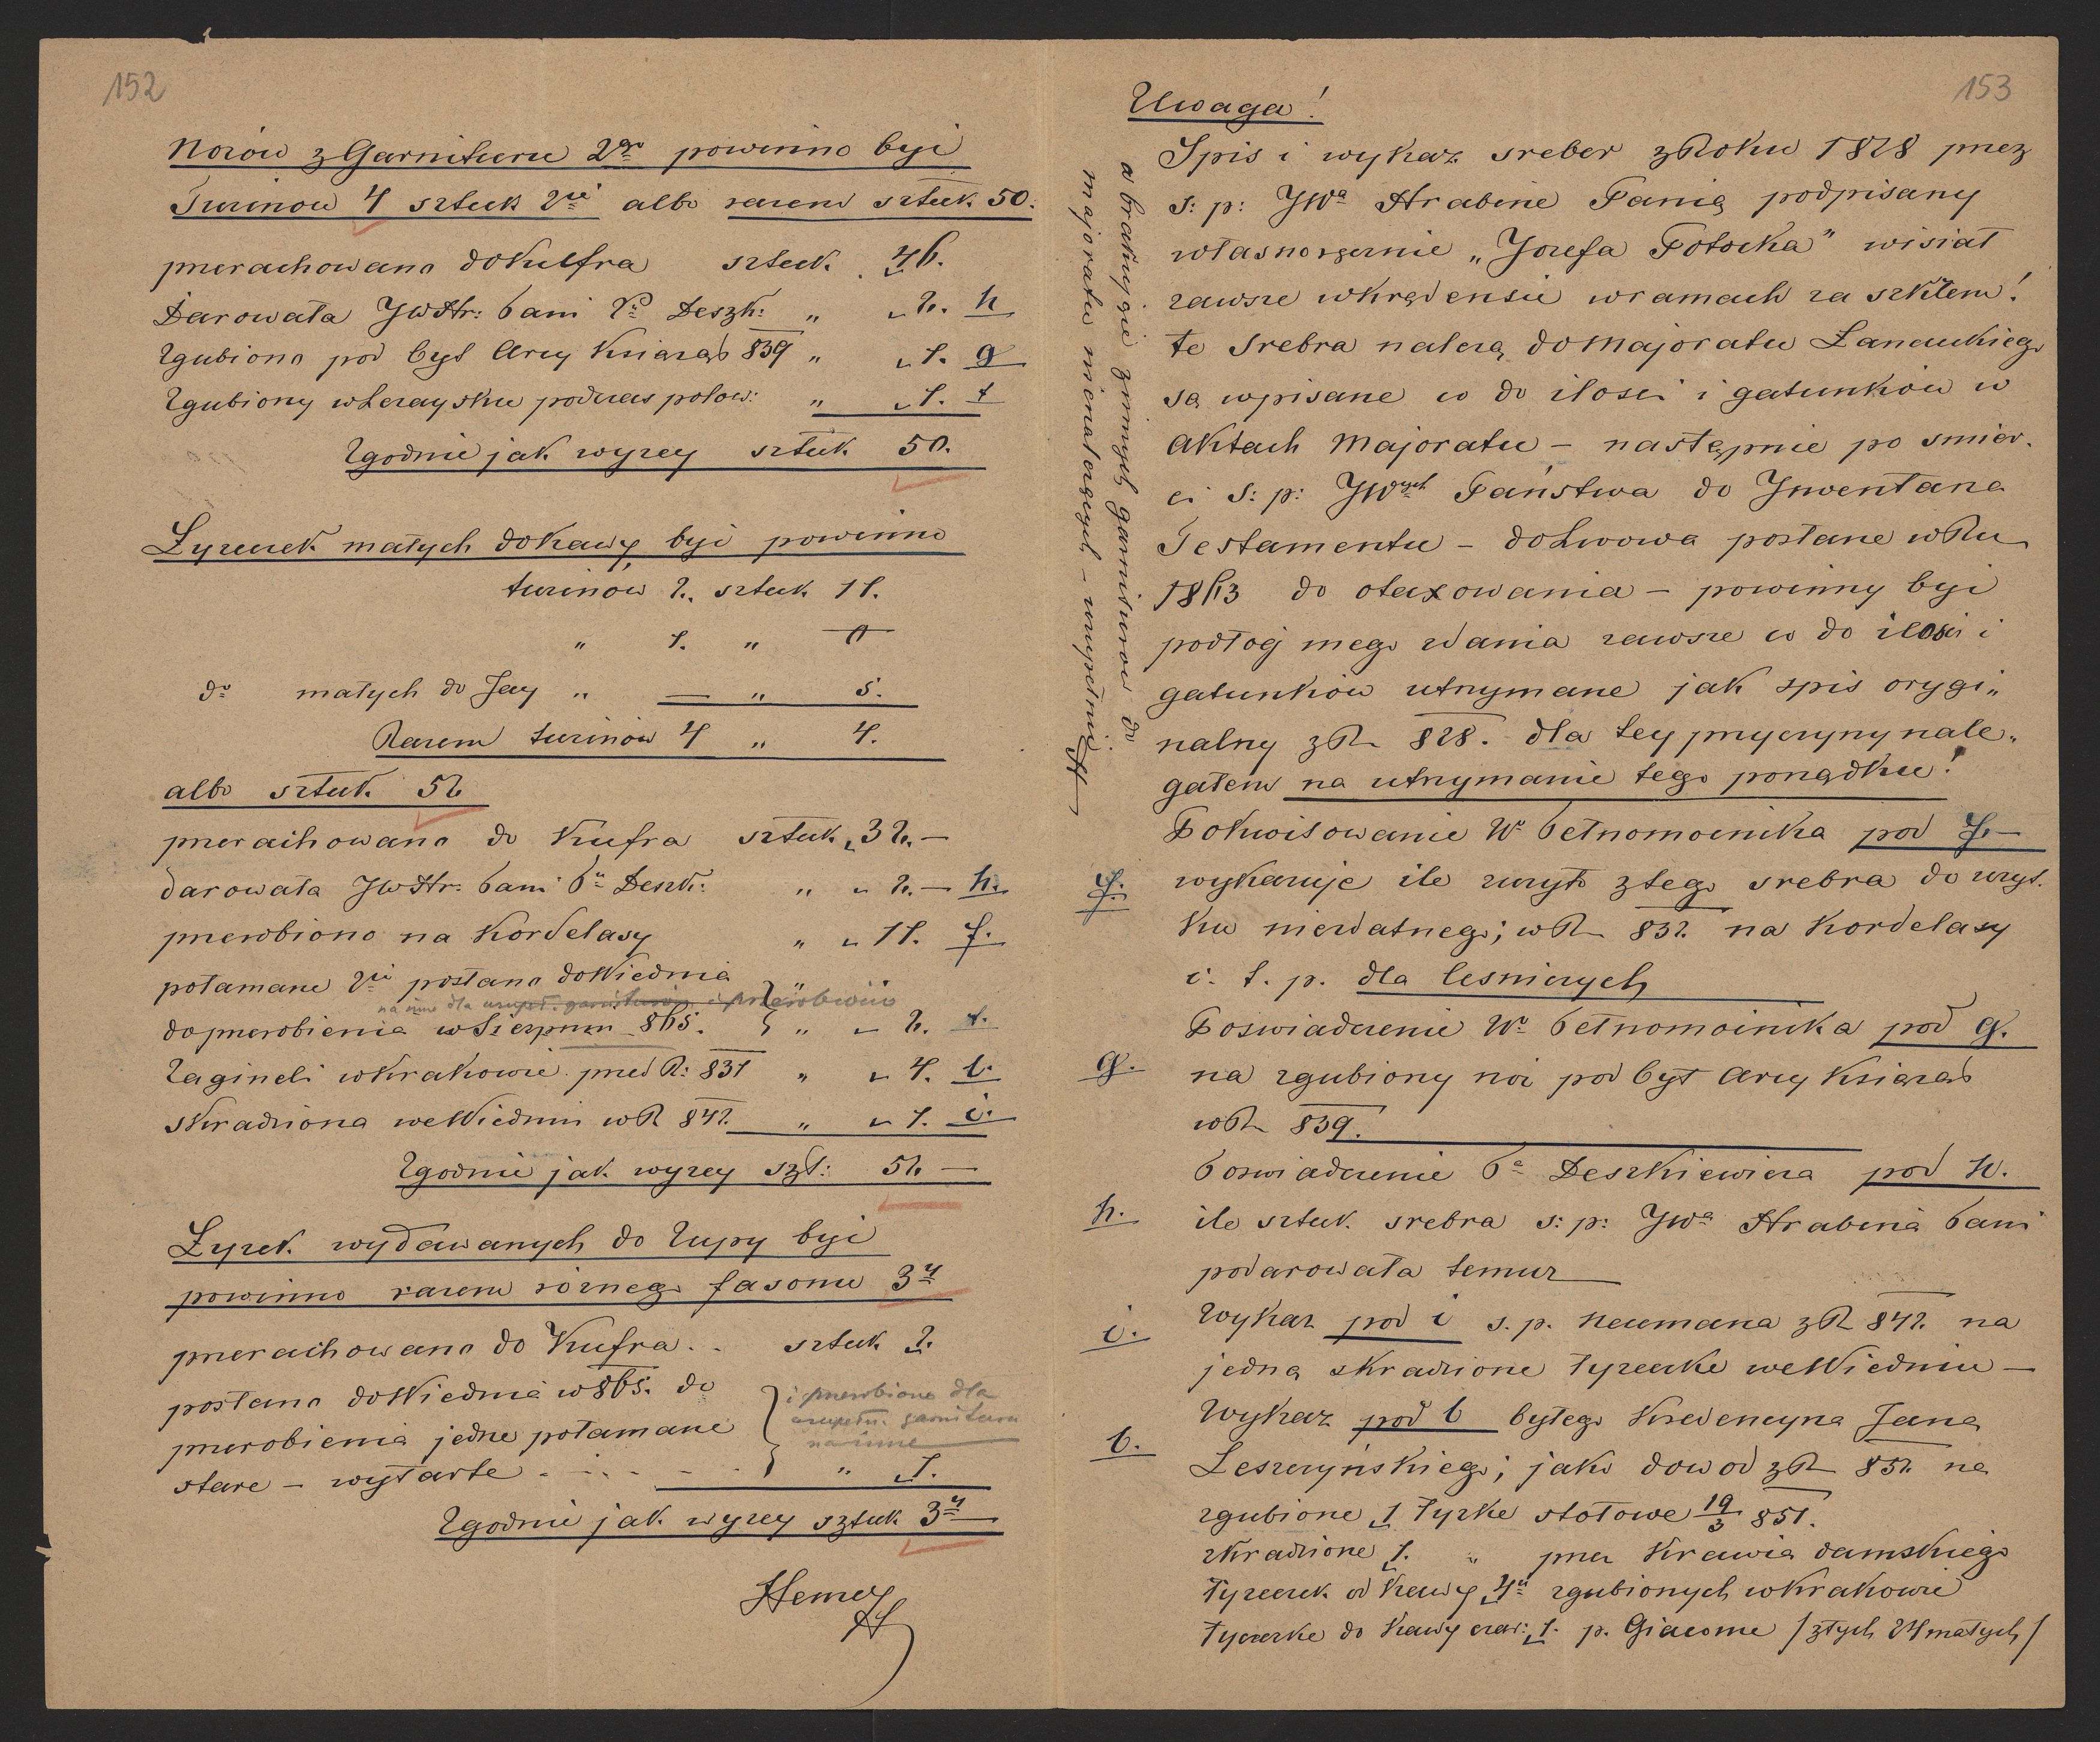 152
Nożów z Garnituru 2go powinno być
Tuzinow 4 sztuk 2ie albo razem sztuk 50.
przerachowano do Kufra sztuk. 46.
Darowała JWHr: Pani Po Deszk: „ „ 2. h
Zgubiono pod byt Arcy Książąt 839 „ „ 1. g
Zgubiony w Leżaysku podczas polow: „ „ 1. t
Zgodnie jak wyzey sztuk 50.
Łyżeczek małych do Kawy być powinno
tuzinow 2. sztuk 11.
„ 1. „ 11
do małych do Jay „ — „ 5.
Razem tuzinow 4 „ 4.
albo sztuk. 52
przerachowano do Kufra sztuk „ 32. —
darowała JWHr: Pani Pu Deszk: „ „ 2. — h.
przerobiono na Kordelasy „ „ 11. f.
połamane 2ie posłano do Wiednia „
na inne dla uzupeł. garniturów i przerobiono
do przerobienia w Sierpniu 865. „ „ 2. t.
Zagineli w Krakowie przed R: 831 „ „ 4. b.
skradziona we Wiedniu w R 842. „ „ 1. i.
Zgodnie jak wyzey szt: 52 —
Łyżek wydawanych do Zupy być
powinno razem róznego fasonu 3y
przerachowano do Kufra . . sztuk 2.
posłano do Wiednia w 865. do
i przerobiono dla
przerobienia jedne połamane
uzupełn. garnituru
na inne
stare – wytarte . . . . . „ 1.
Zgodnie jak wyzey sztuk 3y
Hemer
153
Uwaga!
Spis i wykaz sreber z Roku 1828 przez
s: p: JWa Hrabine Panią podpisany
własnoręcznie „Jozefa Potocka” wisiał
zawsze w kredensie w ramach za szkłem!
te srebra nalezą do Majoratu Łancuckiego
są wpisane co do ilosci i gatunków w
Aktach Majoratu – następnie po smier-
ci s: p: JWych Państwa do Inwentarza
Testamentu – do Lwowa posłane w Ru
1863 do otaxowania – powinny być
podłog mego zdania zawsze co do ilosci i
gatunków utrzymane jak spis orygi„
nalny z R 828. dla tey przyczyny nale„
gałem na utrzymanie tego porządku!
a brakujące z innych garniturow do
majoratu nienależących – uzupełnić.
Pokwitowanie Wo Pełnomocnika pod f. —
f. wykazuje ile zuzyto z tego srebra do uzyt.
ku niezdatnego; w R 832. na Kordelasy
i. t. p. dla lesniczych
Poswiadczenie Wo Pełnomocnika pod g.
g. na zgubiony noż pod byt Arcy Książąt
w R 839.
Poswiadczenie Pa Deszkiewicza pod h.
h. ile sztuk. srebra s: p: JWa Hrabina Pani
podarowała temuz
i. Wykaz pod i s. p. Neumana z R 842. na
jedną skradzione łyzeczke we Wiedniu —
Wykaz pod b byłego Kredencyrza Jana
b. Leszczyńskiego; jako dowod z R 852. na
zgubione 1 łyzke stołowe 19/3 851.
skradzione 1. „ przez Krawca damskiego
łyzeczek od Kawy 4u zgubionych w Krakowie
łyzeczke do Kawy czar: 1. p. Giacome / z tych 24 małych /